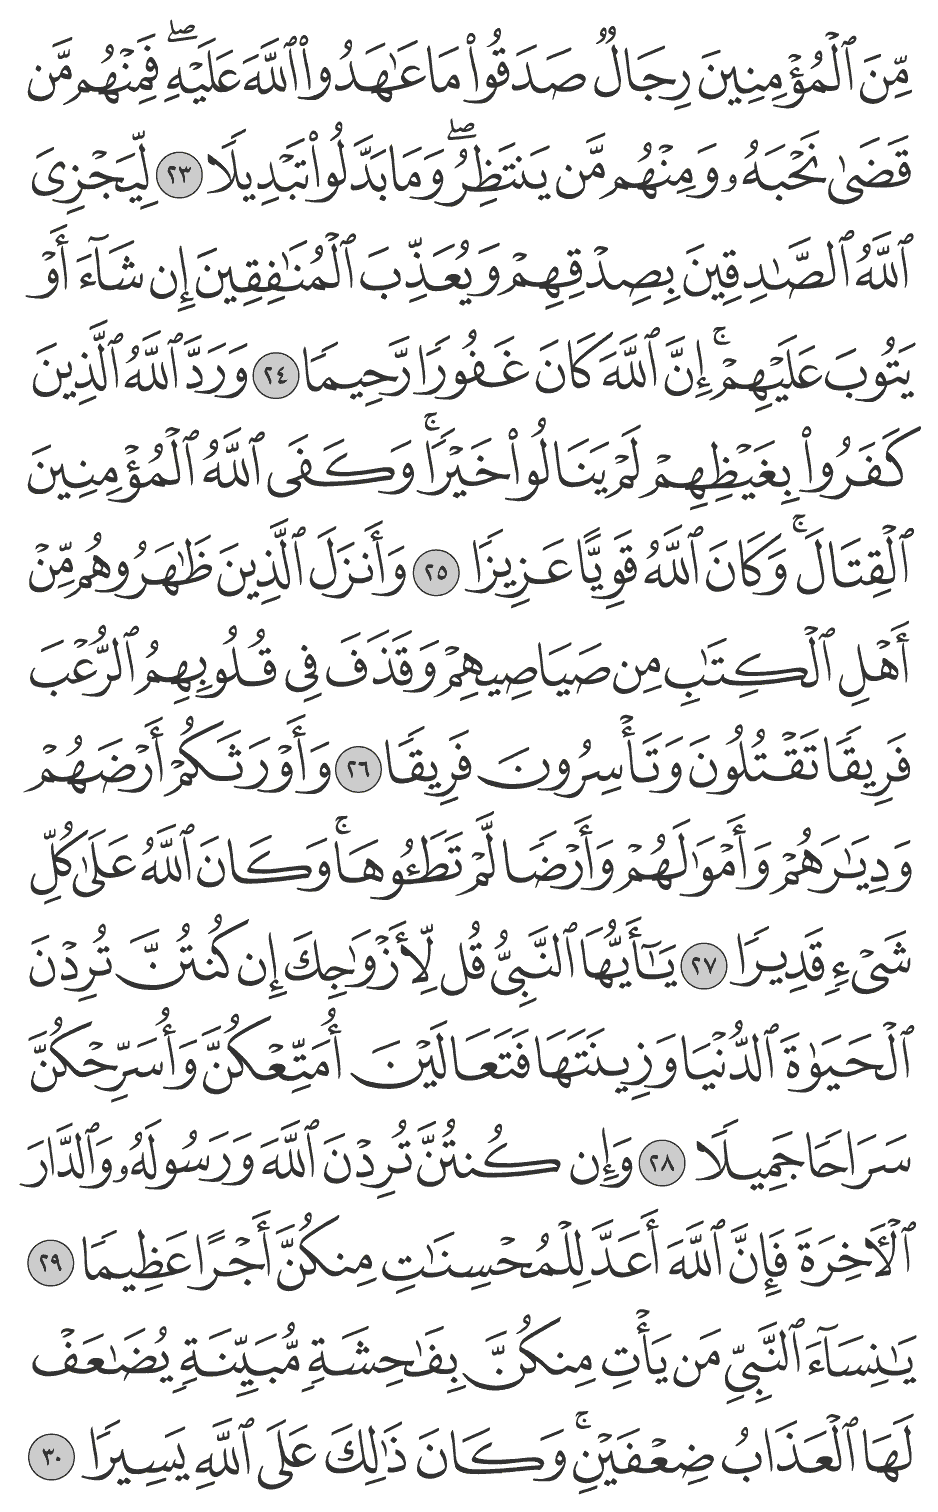 مِّنَ ٱلْمُؤْمِنِينَ رِجَالٌ صَدَقُوا۟ مَا عَـٰهَدُوا۟ ٱللَّهَ عَلَيْهِ ۖ فَمِنْهُم مَّن
قَضَىٰ نَحْبَهُۥ وَمِنْهُم مَّن يَنتَظِرُ ۖ وَمَا بَدَّلُوا۟ تَبْدِيلًا ٢٣ لِّيَجْزِىَ
ٱللَّهُ ٱلصَّـٰدِقِينَ بِصِدْقِهِمْ وَيُعَذِّبَ ٱلْمُنَـٰفِقِينَ إِن شَآءَ أَوْ
يَتُوبَ عَلَيْهِمْ ۚ إِنَّ ٱللَّهَ كَانَ غَفُورًا رَّحِيمًا ٢٤ وَرَدَّ ٱللَّهُ ٱلَّذِينَ
كَفَرُوا۟ بِغَيْظِهِمْ لَمْ يَنَالُوا۟ خَيْرًا ۚ وَكَفَى ٱللَّهُ ٱلْمُؤْمِنِينَ
ٱلْقِتَالَ ۚ وَكَانَ ٱللَّهُ قَوِيًّا عَزِيزًا ٢٥ وَأَنزَلَ ٱلَّذِينَ ظَـٰهَرُوهُم مِّنْ
أَهْلِ ٱلْكِتَـٰبِ مِن صَيَاصِيهِمْ وَقَذَفَ فِى قُلُوبِهِمُ ٱلرُّعْبَ
فَرِيقًا تَقْتُلُونَ وَتَأْسِرُونَ فَرِيقًا ٢٦ وَأَوْرَثَكُمْ أَرْضَهُمْ
وَدِيَـٰرَهُمْ وَأَمْوَٰلَهُمْ وَأَرْضًا لَّمْ تَطَـُٔوهَا ۚ وَكَانَ ٱللَّهُ عَلَىٰ كُلِّ
شَىْءٍ قَدِيرًا ٢٧ يَـٰٓأَيُّهَا ٱلنَّبِىُّ قُل لِّأَزْوَٰجِكَ إِن كُنتُنَّ تُرِدْنَ
ٱلْحَيَوٰةَ ٱلدُّنْيَا وَزِينَتَهَا فَتَعَالَيْنَ أُمَتِّعْكُنَّ وَأُسَرِّحْكُنَّ
سَرَاحًا جَمِيلًا ٢٨ وَإِن كُنتُنَّ تُرِدْنَ ٱللَّهَ وَرَسُولَهُۥ وَٱلدَّارَ
ٱلْـَٔاخِرَةَ فَإِنَّ ٱللَّهَ أَعَدَّ لِلْمُحْسِنَـٰتِ مِنكُنَّ أَجْرًا عَظِيمًا ٢٩
يَـٰنِسَآءَ ٱلنَّبِىِّ مَن يَأْتِ مِنكُنَّ بِفَـٰحِشَةٍ مُّبَيِّنَةٍ يُضَـٰعَفْ
لَهَا ٱلْعَذَابُ ضِعْفَيْنِ ۚ وَكَانَ ذَٰلِكَ عَلَى ٱللَّهِ يَسِيرًا ٣٠